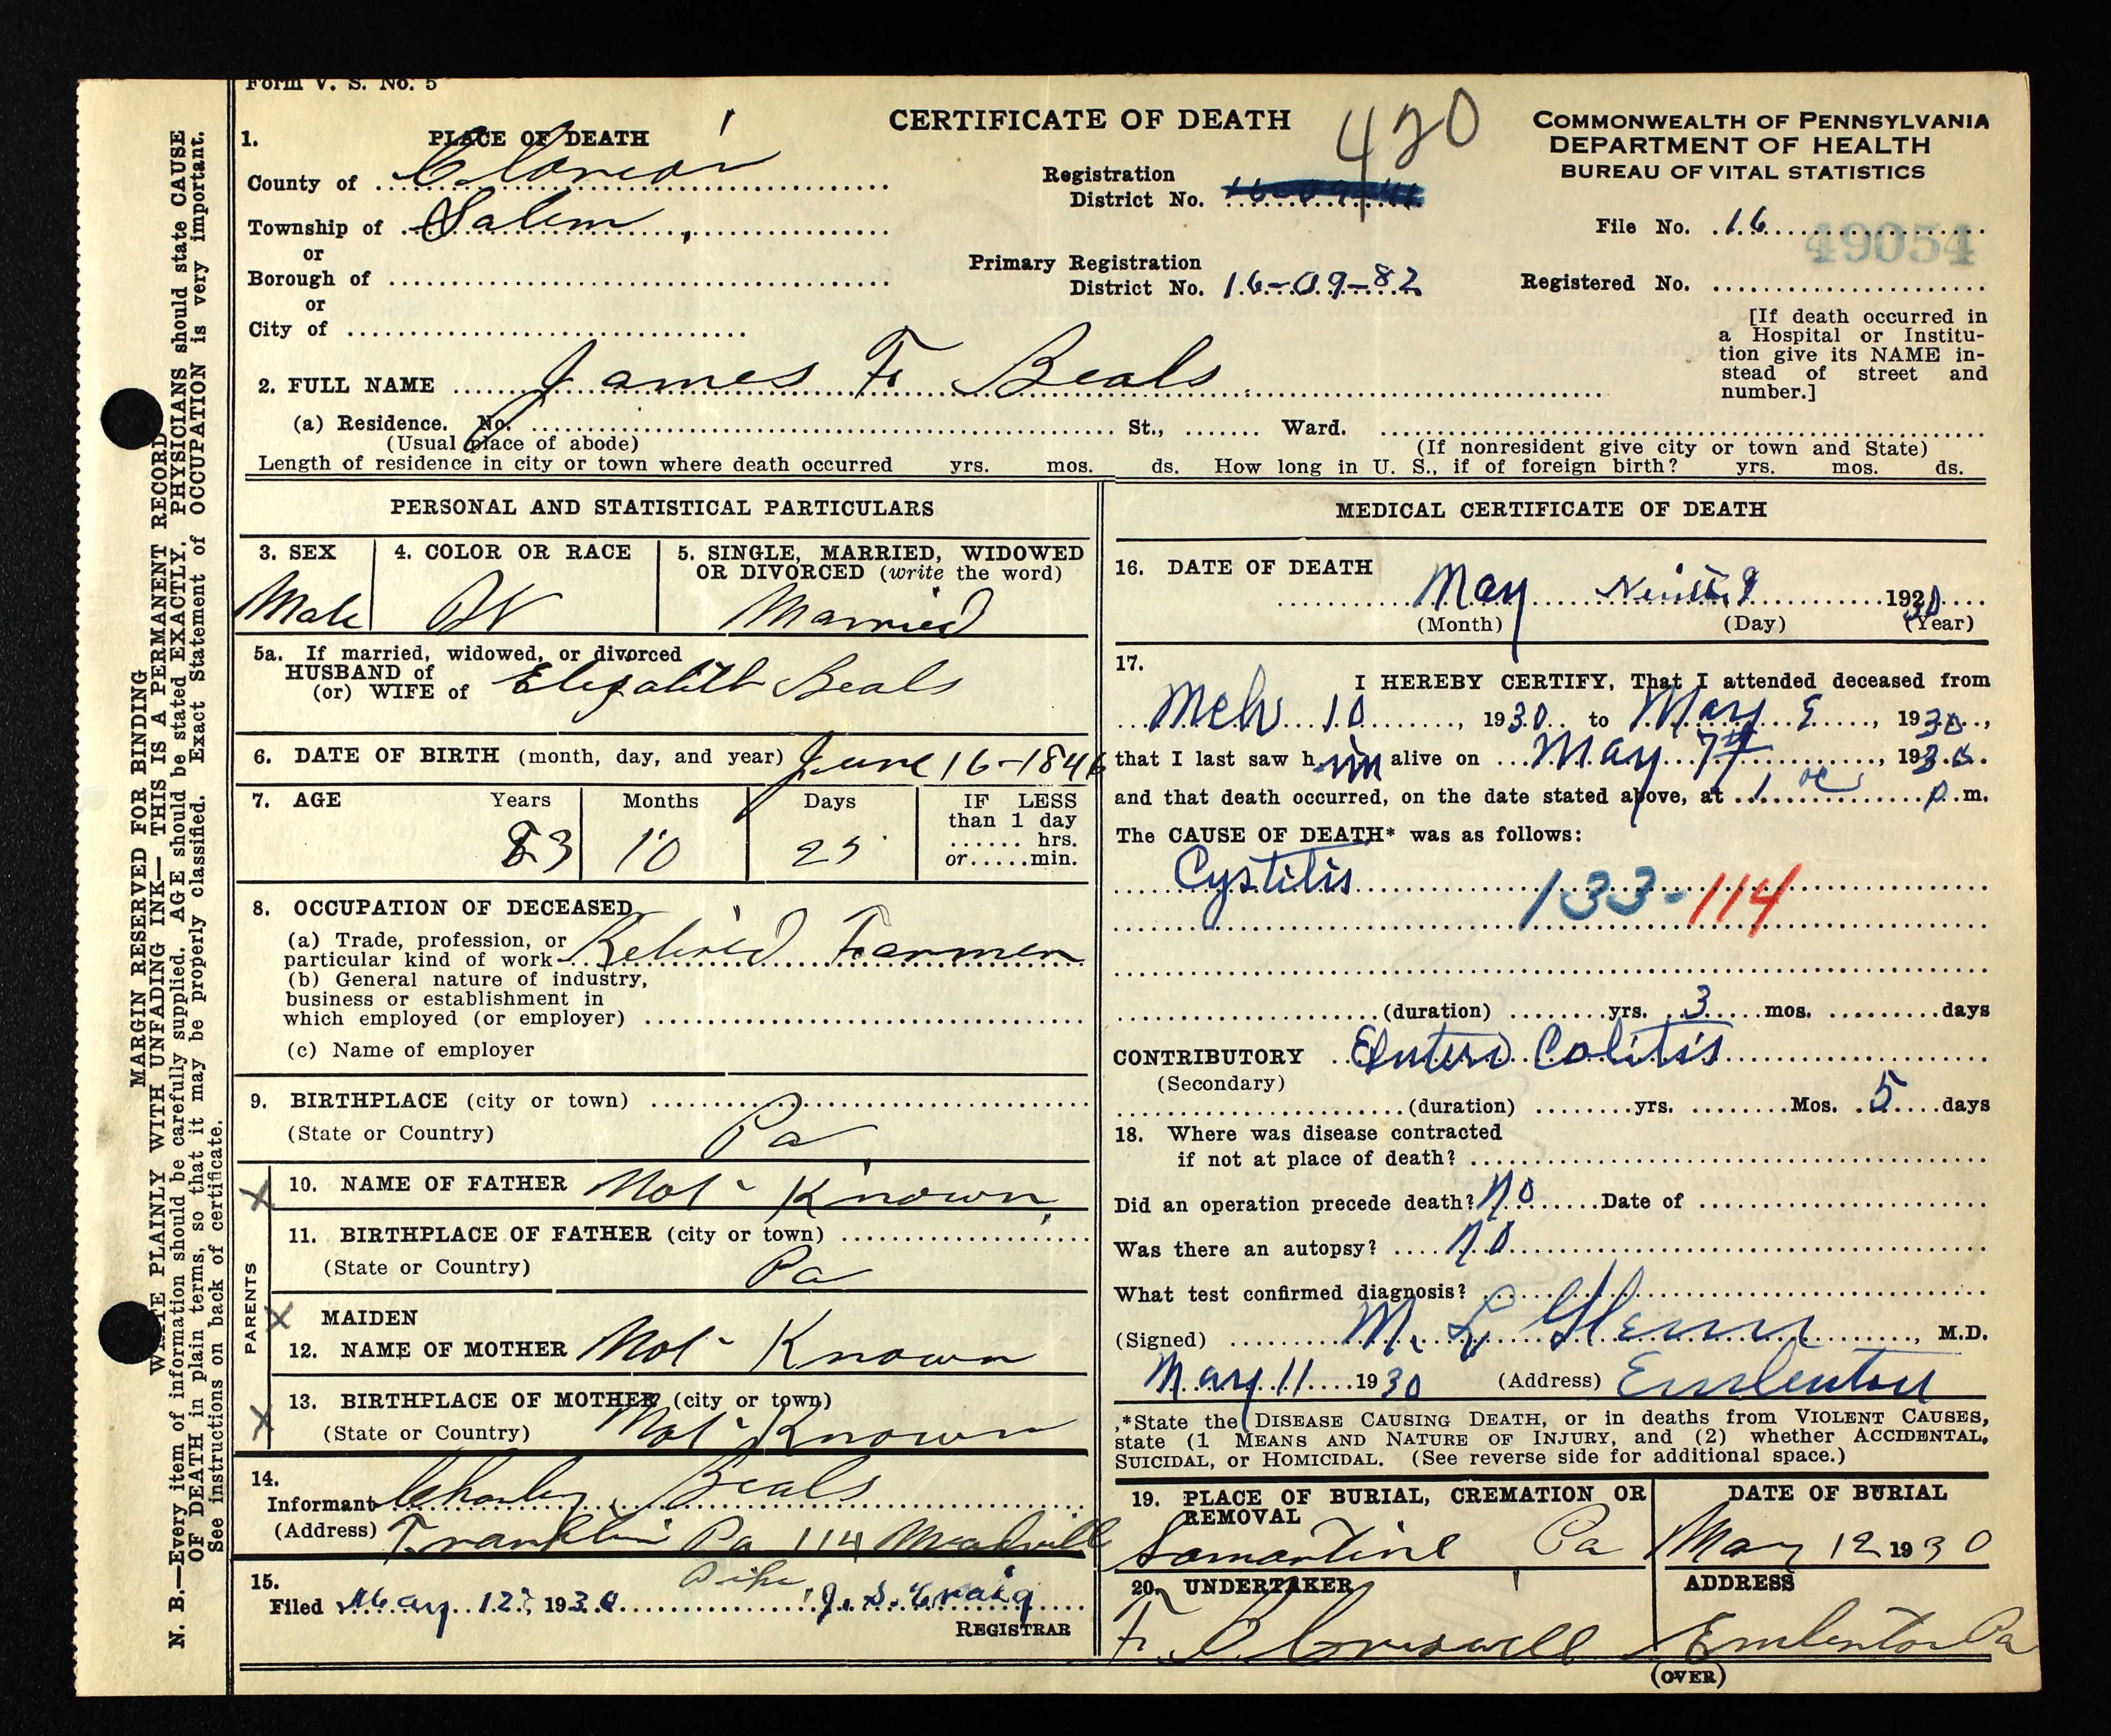 Form V. S. No. 5
CERTIFICATE OF DEATH
420
COMMONWEALTH OF PENNSYLVANIA
DEPARTMENT OF HEALTH
BUREAU OF VITAL STATISTICS
1. PLACE OF DEATH
County of Clarion
Township of Salem
or
Borough of
or
City of
Registration
District No. 16-09-
Primary Registration
District No. 16-09-82
File No. 16
49054
Registered No.
[If death occurred in
a Hospital or Institu-
tion give its NAME in-
stead of street and
number.]
2. FULL NAME James F. Beals
(a) Residence. No. St., Ward.
(Usual place of abode) (If nonresident give city or town and State)
Length of residence in city or town where death occurred yrs. mos. ds. How long in U. S., if of foreign birth? yrs. mos. ds.
PERSONAL AND STATISTICAL PARTICULARS
3. SEX
Male
4. COLOR OR RACE
W
5. SINGLE, MARRIED, WIDOWED
OR DIVORCED (write the word)
Married
5a. If married, widowed, or divorced
HUSBAND of
(or) WIFE of Elizabeth Beals
6. DATE OF BIRTH (month, day, and year) June 16-1846
7. AGE Years Months Days IF LESS
than 1 day
hrs.
or min.
83 10 25
8. OCCUPATION OF DECEASED
(a) Trade, profession, or
particular kind of work Retired Farmer
(b) General nature of industry,
business or establishment in
which employed (or employer)
(c) Name of employer
9. BIRTHPLACE (city or town)
(State or Country) Pa
PARENTS
10. NAME OF FATHER Not Known
11. BIRTHPLACE OF FATHER (city or town)
(State or Country) Pa
MAIDEN
12. NAME OF MOTHER Not Known
13. BIRTHPLACE OF MOTHER (city or town)
(State or Country) Not Known
14.
Informant Charley Beals
(Address) Franklin Pa 114 Meadvill
Pike
15.
Filed May 12, 1930 J. S. Craig
REGISTRAR
MEDICAL CERTIFICATE OF DEATH
16. DATE OF DEATH
May 9 1930
(Month) (Day) (Year)
17.
I HEREBY CERTIFY, That I attended deceased from
Mch 10, 1930 to May 9, 1930,
that I last saw him alive on May 7th, 1930.
and that death occurred, on the date stated above, at 1 oc p.m.
The CAUSE OF DEATH* was as follows:
Cystitis
133-114
(duration) yrs. 3 mos. days
CONTRIBUTORY Entero Colitis
(Secondary)
(duration) yrs. Mos. 5 days
18. Where was disease contracted
if not at place of death?
Did an operation precede death? No Date of
Was there an autopsy? No
What test confirmed diagnosis?
(Signed) M. L. Glenn, M.D.
May 11 1930 (Address) Emlenton
*State the DISEASE CAUSING DEATH, or in deaths from VIOLENT CAUSES,
state (1 MEANS AND NATURE OF INJURY, and (2) whether ACCIDENTAL,
SUICIDAL, or HOMICIDAL. (See reverse side for additional space.)
19. PLACE OF BURIAL, CREMATION OR
REMOVAL
Lamartine Pa
DATE OF BURIAL
May 12 1930
20. UNDERTAKER
F. C. Criswell
ADDRESS
Emlenton Pa
(OVER)
MARGIN RESERVED FOR BINDING
WRITE PLAINLY WITH UNFADING INK—THIS IS A PERMANENT RECORD
N. B.—Every item of information should be carefully supplied. AGE should be stated EXACTLY. PHYSICIANS should state CAUSE
OF DEATH in plain terms, so that it may be properly classified. Exact Statement of OCCUPATION is very important.
See instructions on back of certificate.